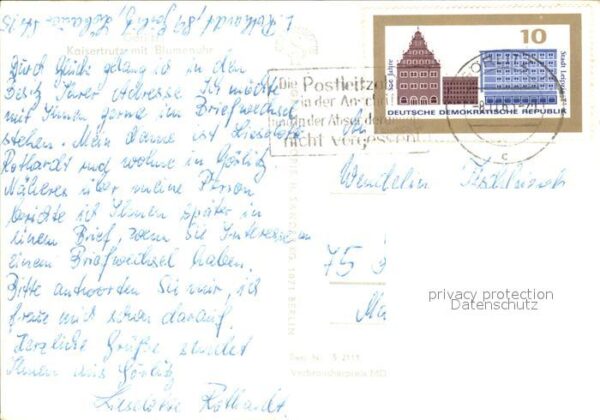 L. Rothardt, 89 Görlitz,
Kaisertrutz mit Blumenuhr
Durch Glück gelang ich in den
Besitz Ihrer Adresse. Ich möchte
mit Ihnen gerne im Briefwechsel
stehen. Mein Name ist Lieselotte
Rothardt und wohne in Görlitz
Näheres über meine Person
berichte ich Ihnen später in
einem Brief, wenn Sie Interesse an
einem Briefwechsel haben.
Bitte antworten Sie mir, ich
freue mich schon darauf.
Herzliche Grüße, sendet
Ihnen aus Görlitz
Lieselotte Rothardt
10
800 Jahre
Stadt Leipzig
DEUTSCHE DEMOKRATISCHE REPUBLIK
Die Postleitzahl
in der Anschrift
und in der Absenderangabe
nicht vergessen
c
Wendelin
75
1071 BERLIN
Verbraucherpreis MDN
privacy protection
Datenschutz